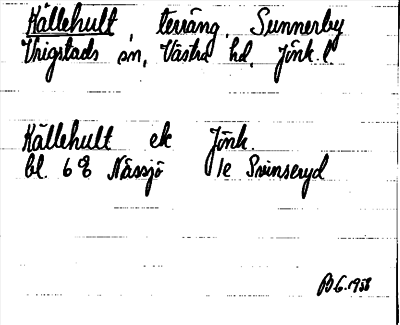 Källehult, terräng, Sunnerby
Vrigstads sn, Västra hd, Jönk. l
Källehult ek Jönk.
bl. 6 E Nässjö 1e Svinseryd
BG. 1958